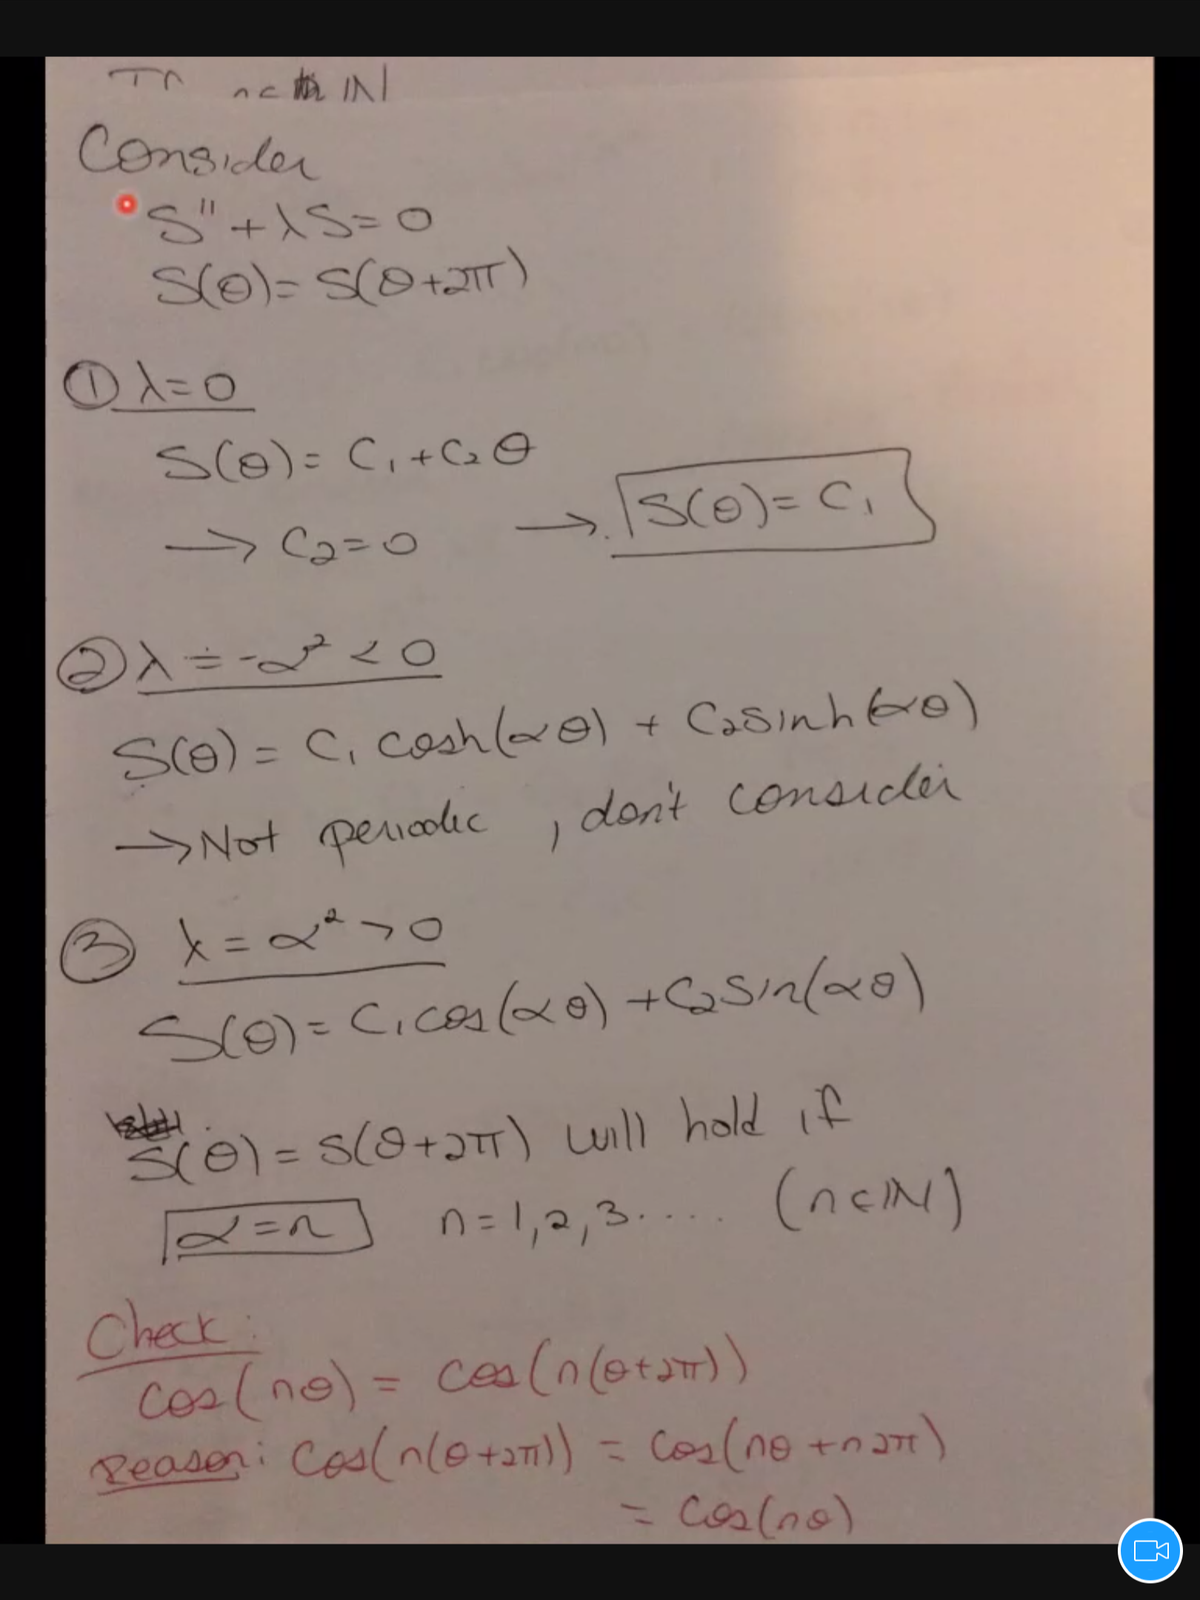 Consider
S'' + λS = 0
S(θ) = S(θ+2π)
① λ = 0
S(θ) = C₁ + C₂θ
→ C₂ = 0 → S(θ) = C₁
② λ = -α² < 0
S(θ) = C₁ cosh(αθ) + C₂ sinh(αθ)
→ Not periodic, don't consider
③ λ = α² > 0
S(θ) = C₁ cos(αθ) + C₂ sin(αθ)
S(θ) = S(θ+2π) will hold if
α = n n = 1, 2, 3.... (n ∈ ℕ)
Check:
cos(nθ) = cos(n(θ+2π))
Reason: cos(n(θ+2π)) = cos(nθ + n2π)
= cos(nθ)